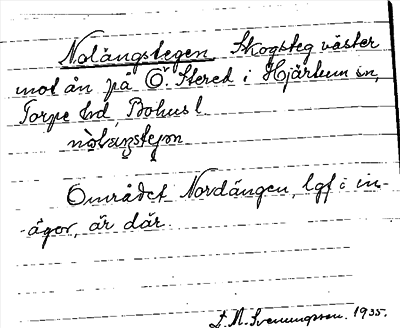 Nolängstegen Skogsteg väster
mot ån på Ö. Stered i Hjärtum sn,
Torpe hd, Bohusl
Området Nordängen, lgf i in-
ägor, är där
M. Svenungsson. 1935.